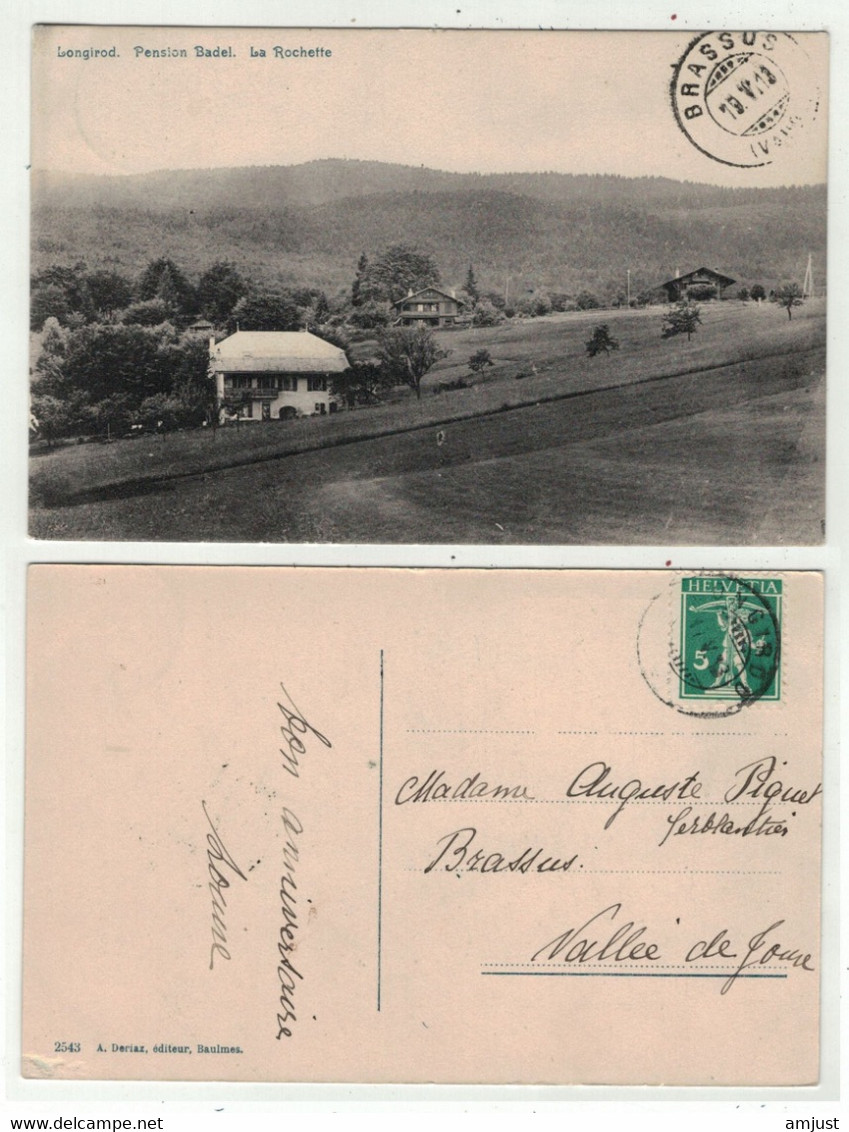 Longirod. Pension Badel. La Rochette
BRASSUS
(VAUD)
HELVETIA
5
Madame Auguste Piguet
ferblantier
Brassus.
Vallée de Joux
bon anniversaire
2543 A. Deriaz, éditeur, Baulmes.
delcampe.net
amjust